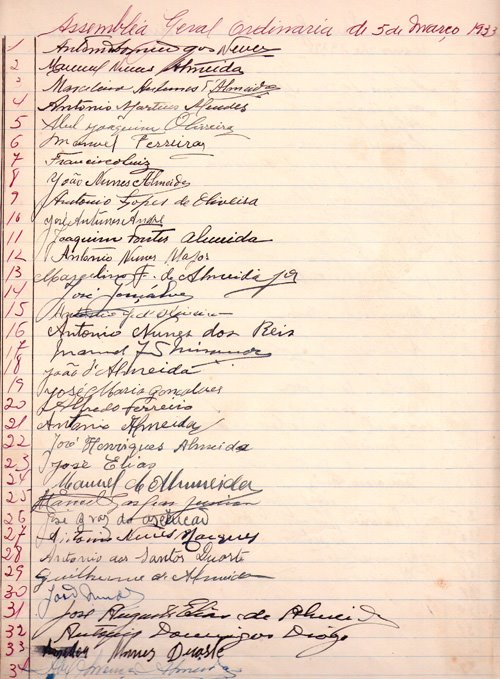 Assembléa Geral Ordinaria de 5 de Março 1933
1 Antonio Domingos Neves
2 Manuel Nunes Almeida
3 Marcelino Antunes d'Almeida
4 Antonio Martins Mendes
5 Abel Joaquim Oliveira
6 Manuel Ferreira
7 Francisco Luiz
8 João Nunes Almeida
9 Antonio Lopes de Oliveira
10 José Antunes André
11 Joaquim Fontes Almeida
12 Antonio Nunes Major
13 Marcelino F. de Almeida Jor
14 José Gonçalves
15 d'Oliveira
16 Antonio Nunes dos Reis
17 Manuel
18 João d'Almeida
19 José Maria Gonçalves
20 Alfredo Ferreira
21 Antonio Almeida
22 José Henriques Almeida
23 José Elias
24 Manuel de Almeida
25 Manuel Gaspar
26 José
27 Nunes Marques
28 Antonio dos Santos Duarte
29 Guilherme de Almeida
30 José
31 José Augusto Elias de Almeida
32 Antonio Domingos Diogo
33 Nunes Duarte
34 Almeida